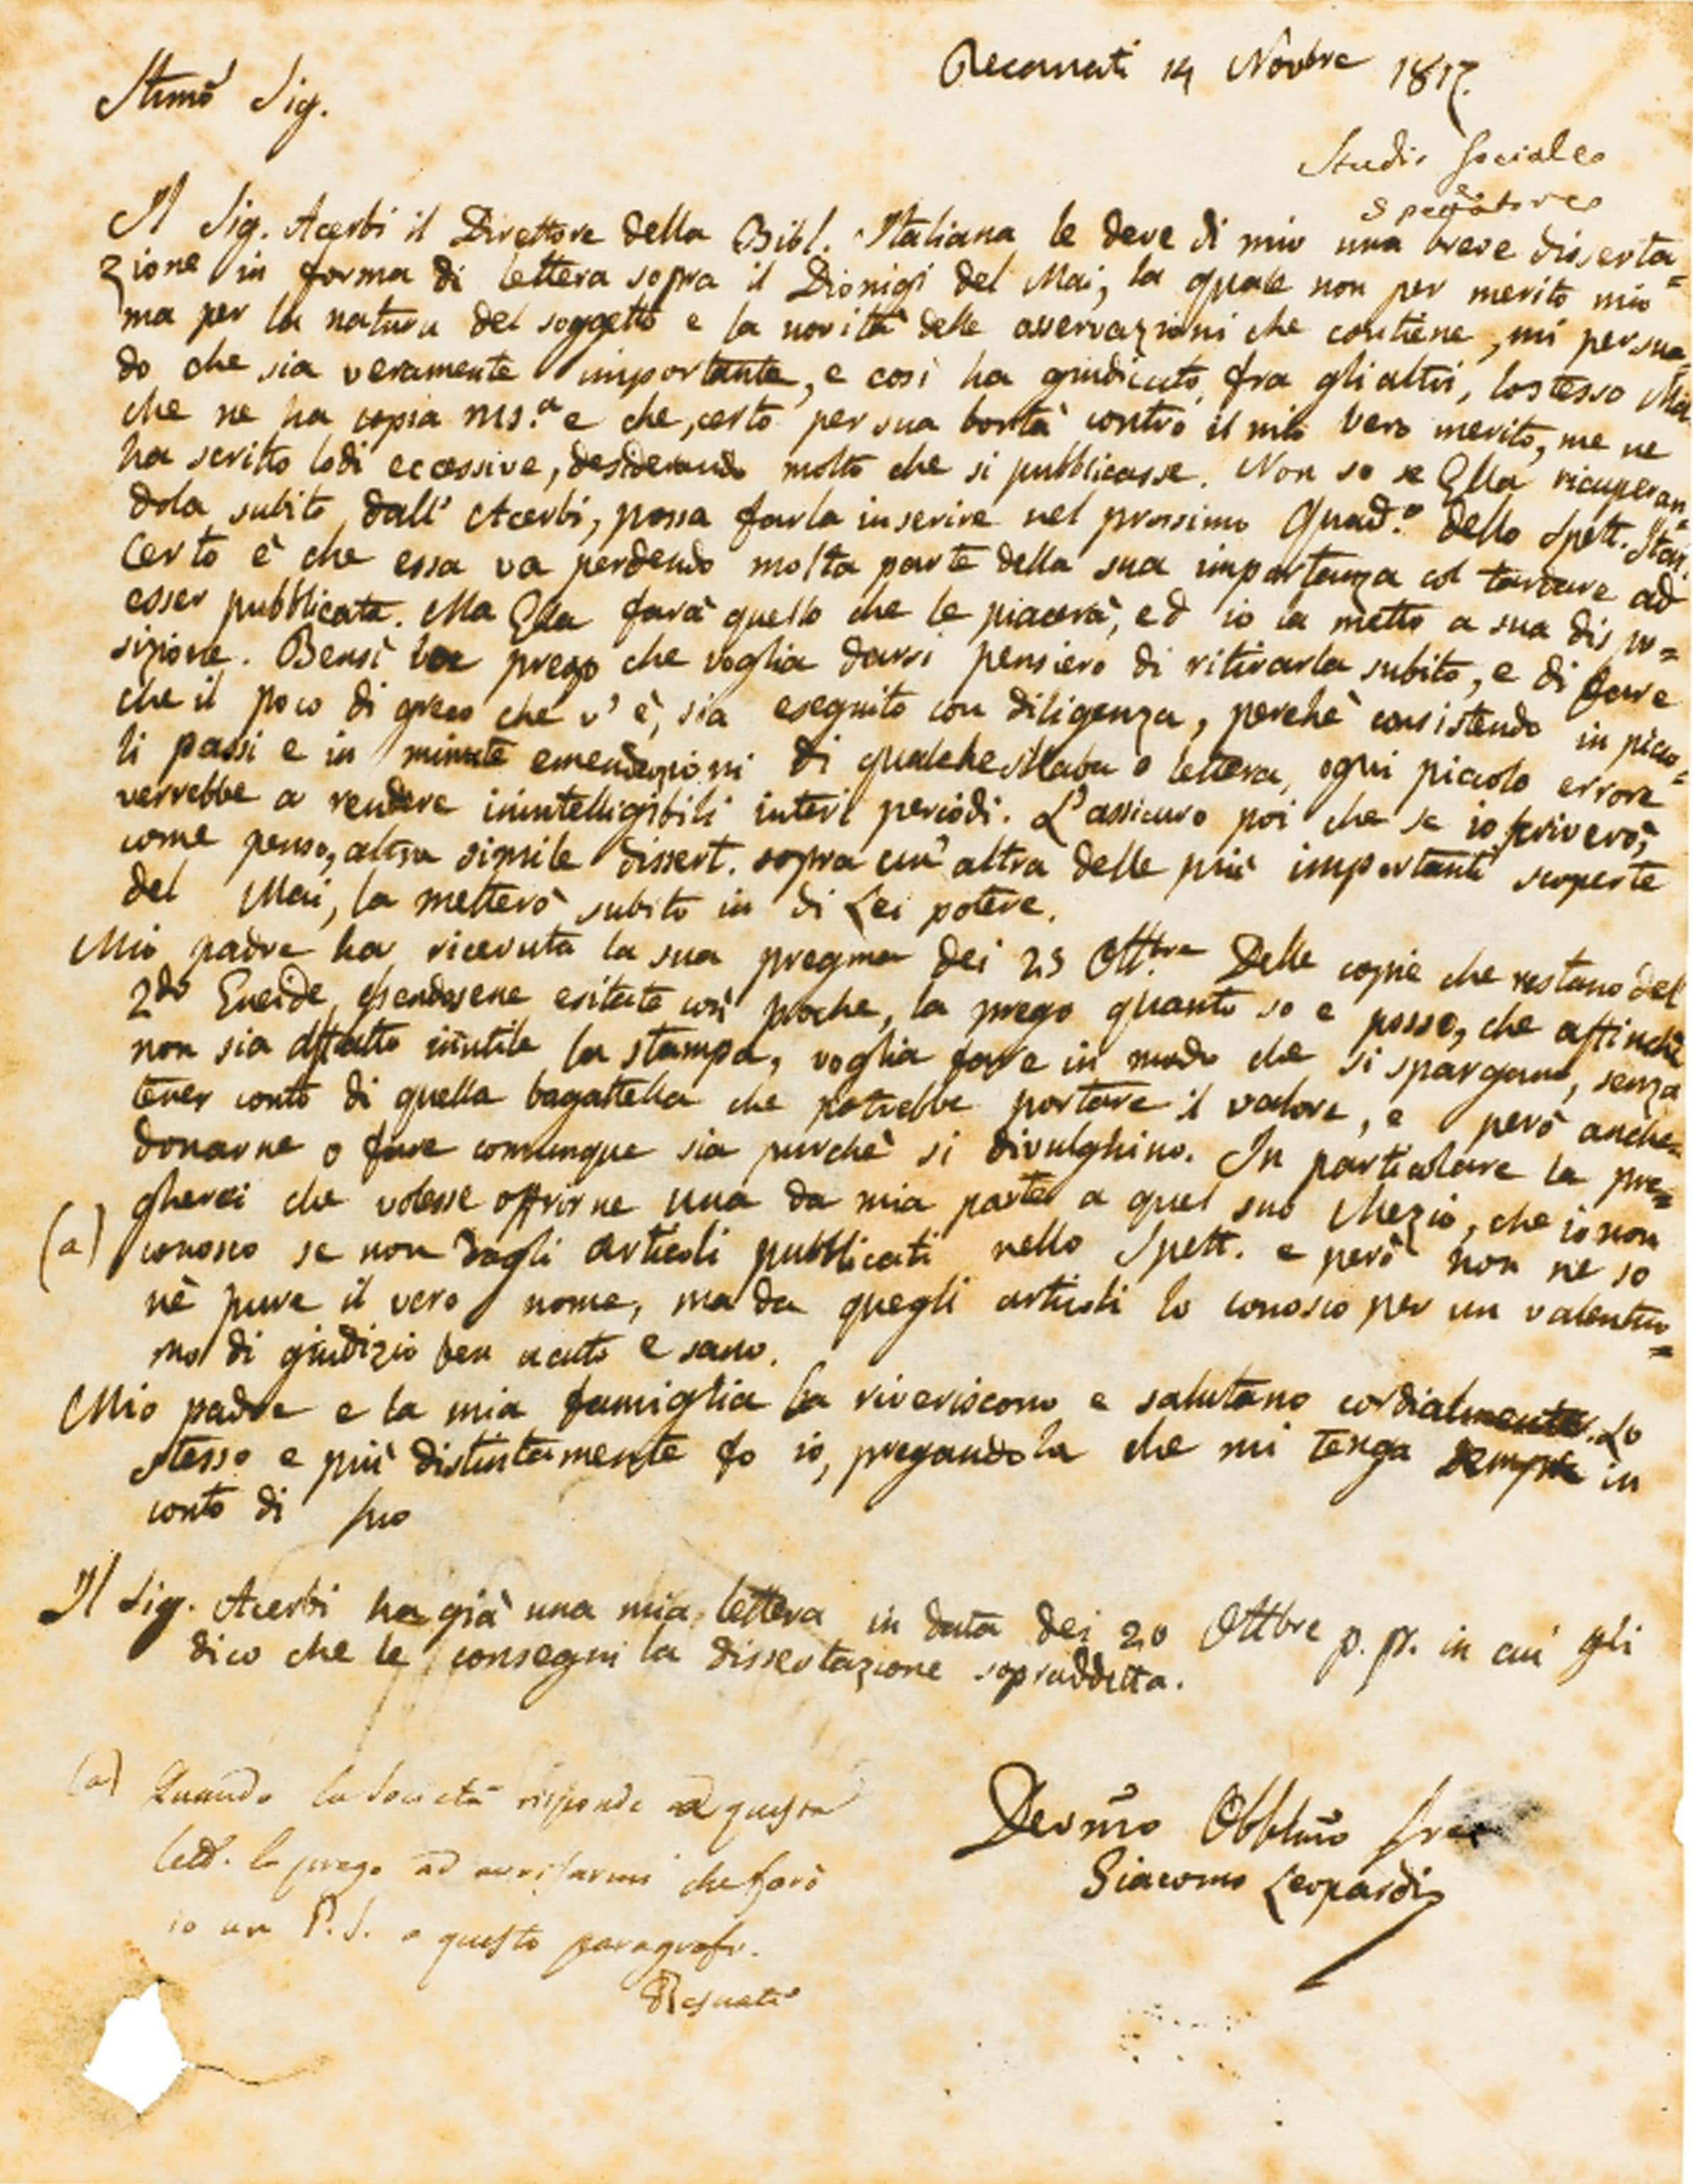 Recanati 14 Novbre 1817.
Stimo Sig.
Studio Sociale
Spettatore
Il Sig. Acerbi il Direttore della Bibl. Italiana le deve di mio una breve disserta=
zione in forma di lettera sopra il Dionigi del Mai, la quale non per merito mio
ma per la natura del soggetto e la novità delle osservazioni che contiene, mi persua=
do che sia veramente importante, e così ha giudicato, fra gli altri, lo stesso Mai
che ne ha copia ms.a e che, certo per sua bontà contro il mio vero merito, me ne
ha scritto lodi eccessive, desiderando molto che si pubblicasse. Non so se Ella ricuperan=
dola subito dall' Acerbi, possa farla inserire nel prossimo Quad.o dello Spett. Ital.
Certo è che essa va perdendo molta parte della sua importanza col tardare ad
esser pubblicata. Ma Ella farà quello che le piacerà, ed io la metto a sua dispo=
sizione. Bensì la prego che voglia darsi pensiero di ritirarla subito, e di fare
che il poco di greco che v' è, sia eseguito con diligenza, perchè consistendo in picco=
li passi e in minute emendazioni di qualche sillaba o lettera, ogni piccolo errore
verrebbe a rendere inintelligibili interi periodi. L'assicuro poi che se io scriverò,
come penso, altra simile dissert. sopra un' altra delle più importanti scoperte
del Mai, la metterò subito in di Lei potere.
Mio padre ha ricevuta la sua pregma dei 25 Ottbre. Delle copie che restano del
2do Eneide, essendosene esitate così poche, la prego quanto so e posso, che affinchè
non sia affatto inutile la stampa, voglia fare in modo che si spargano, senza
tener conto di quella bagattella che potrebbe portare il valore, e però anche
donarne o fare comunque sia purchè si divulghino. In particolare la pre=
gherei che volesse offrirne una da mia parte a quel suo Mezio, che io non
(a) conosco se non dagli articoli pubblicati nello Spett. e però non ne so
nè pure il vero nome, ma da quegli articoli lo conosco per un valentuo=
mo di giudizio ben acuto e sano.
Mio padre e la mia famiglia la riveriscono e salutano cordialmente. Lo
stesso e più distintamente fo io, pregandola che mi tenga sempre in
conto di suo
Il Sig. Acerbi ha già una mia lettera in data dei 20 Ottbre p. p. in cui gli
dico che le consegni la dissertazione sopraddetta.
(a) Quando la Società risponde a questa
lett. la prego ad avvisarmi che farò
io un P.S. a questo paragrafo.
Devmo Obblmo
Giacomo Leopardi